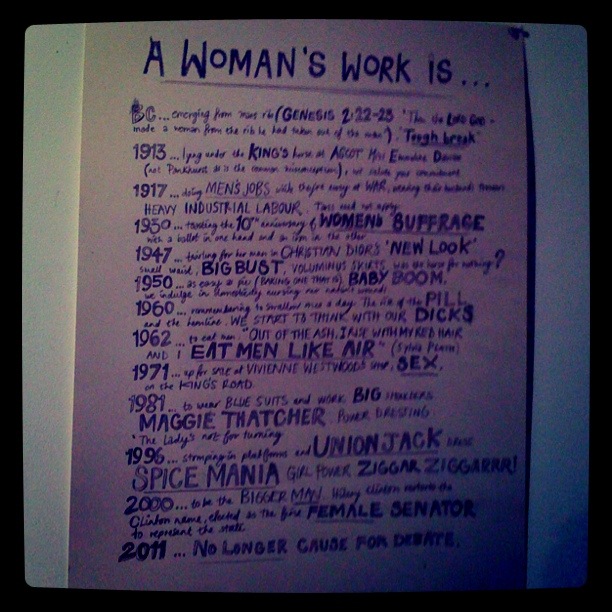 A WOMAN'S WORK IS...
BC... emerging from mans rib (GENESIS 2:22-23 'Then the LORD GOD
made a woman from the rib he had taken out of the man'). "Tough break"
1913... lying under the KING'S horse at ASCOT Miss Emmeline Davison
(not Pankhurst as is the common misconception), we salute your commitment
1917... doing MEN'S JOBS with they're away at WAR, wearing their husbands trousers
HEAVY INDUSTRIAL LABOUR. Tans need not apply.
1930... toasting the 10th anniversary of WOMENS SUFFRAGE
with a ballot in one hand and an iron in the other
1947... twirling for her man in CHRISTIAN DIOR'S 'NEW LOOK'
small waist, BIG BUST, VOLUMINUS SKIRTS, was the war for nothing?
1950... as easy as pie (BAKING ONE THAT IS) BABY BOOM,
we indulge in domesticity nursing our nation's wounds
1960... remembering to swallow once a day. The rise of the PILL
and the hemline. WE START TO THINK WITH OUR DICKS
1962... to eat men. "OUT OF THE ASH, I RISE WITH MY RED HAIR
AND I EAT MEN LIKE AIR" (Sylvia Plath)
1971... up for sale at VIVIENNE WESTWOODS shop, SEX,
on the KING'S ROAD
1981... to wear BLUE SUITS and work BIG shoulders
MAGGIE THATCHER POWER DRESSING
"The Lady's not for turning
1996... stomping in platforms and UNION JACK dress
SPICE MANIA GIRL POWER ZIGGAR ZIGGARRR!
2000... to be the BIGGER MAN. Hilary Clinton restores the
Clinton name, elected as the first FEMALE SENATOR
to represent the state
2011... NO LONGER CAUSE FOR DEBATE.